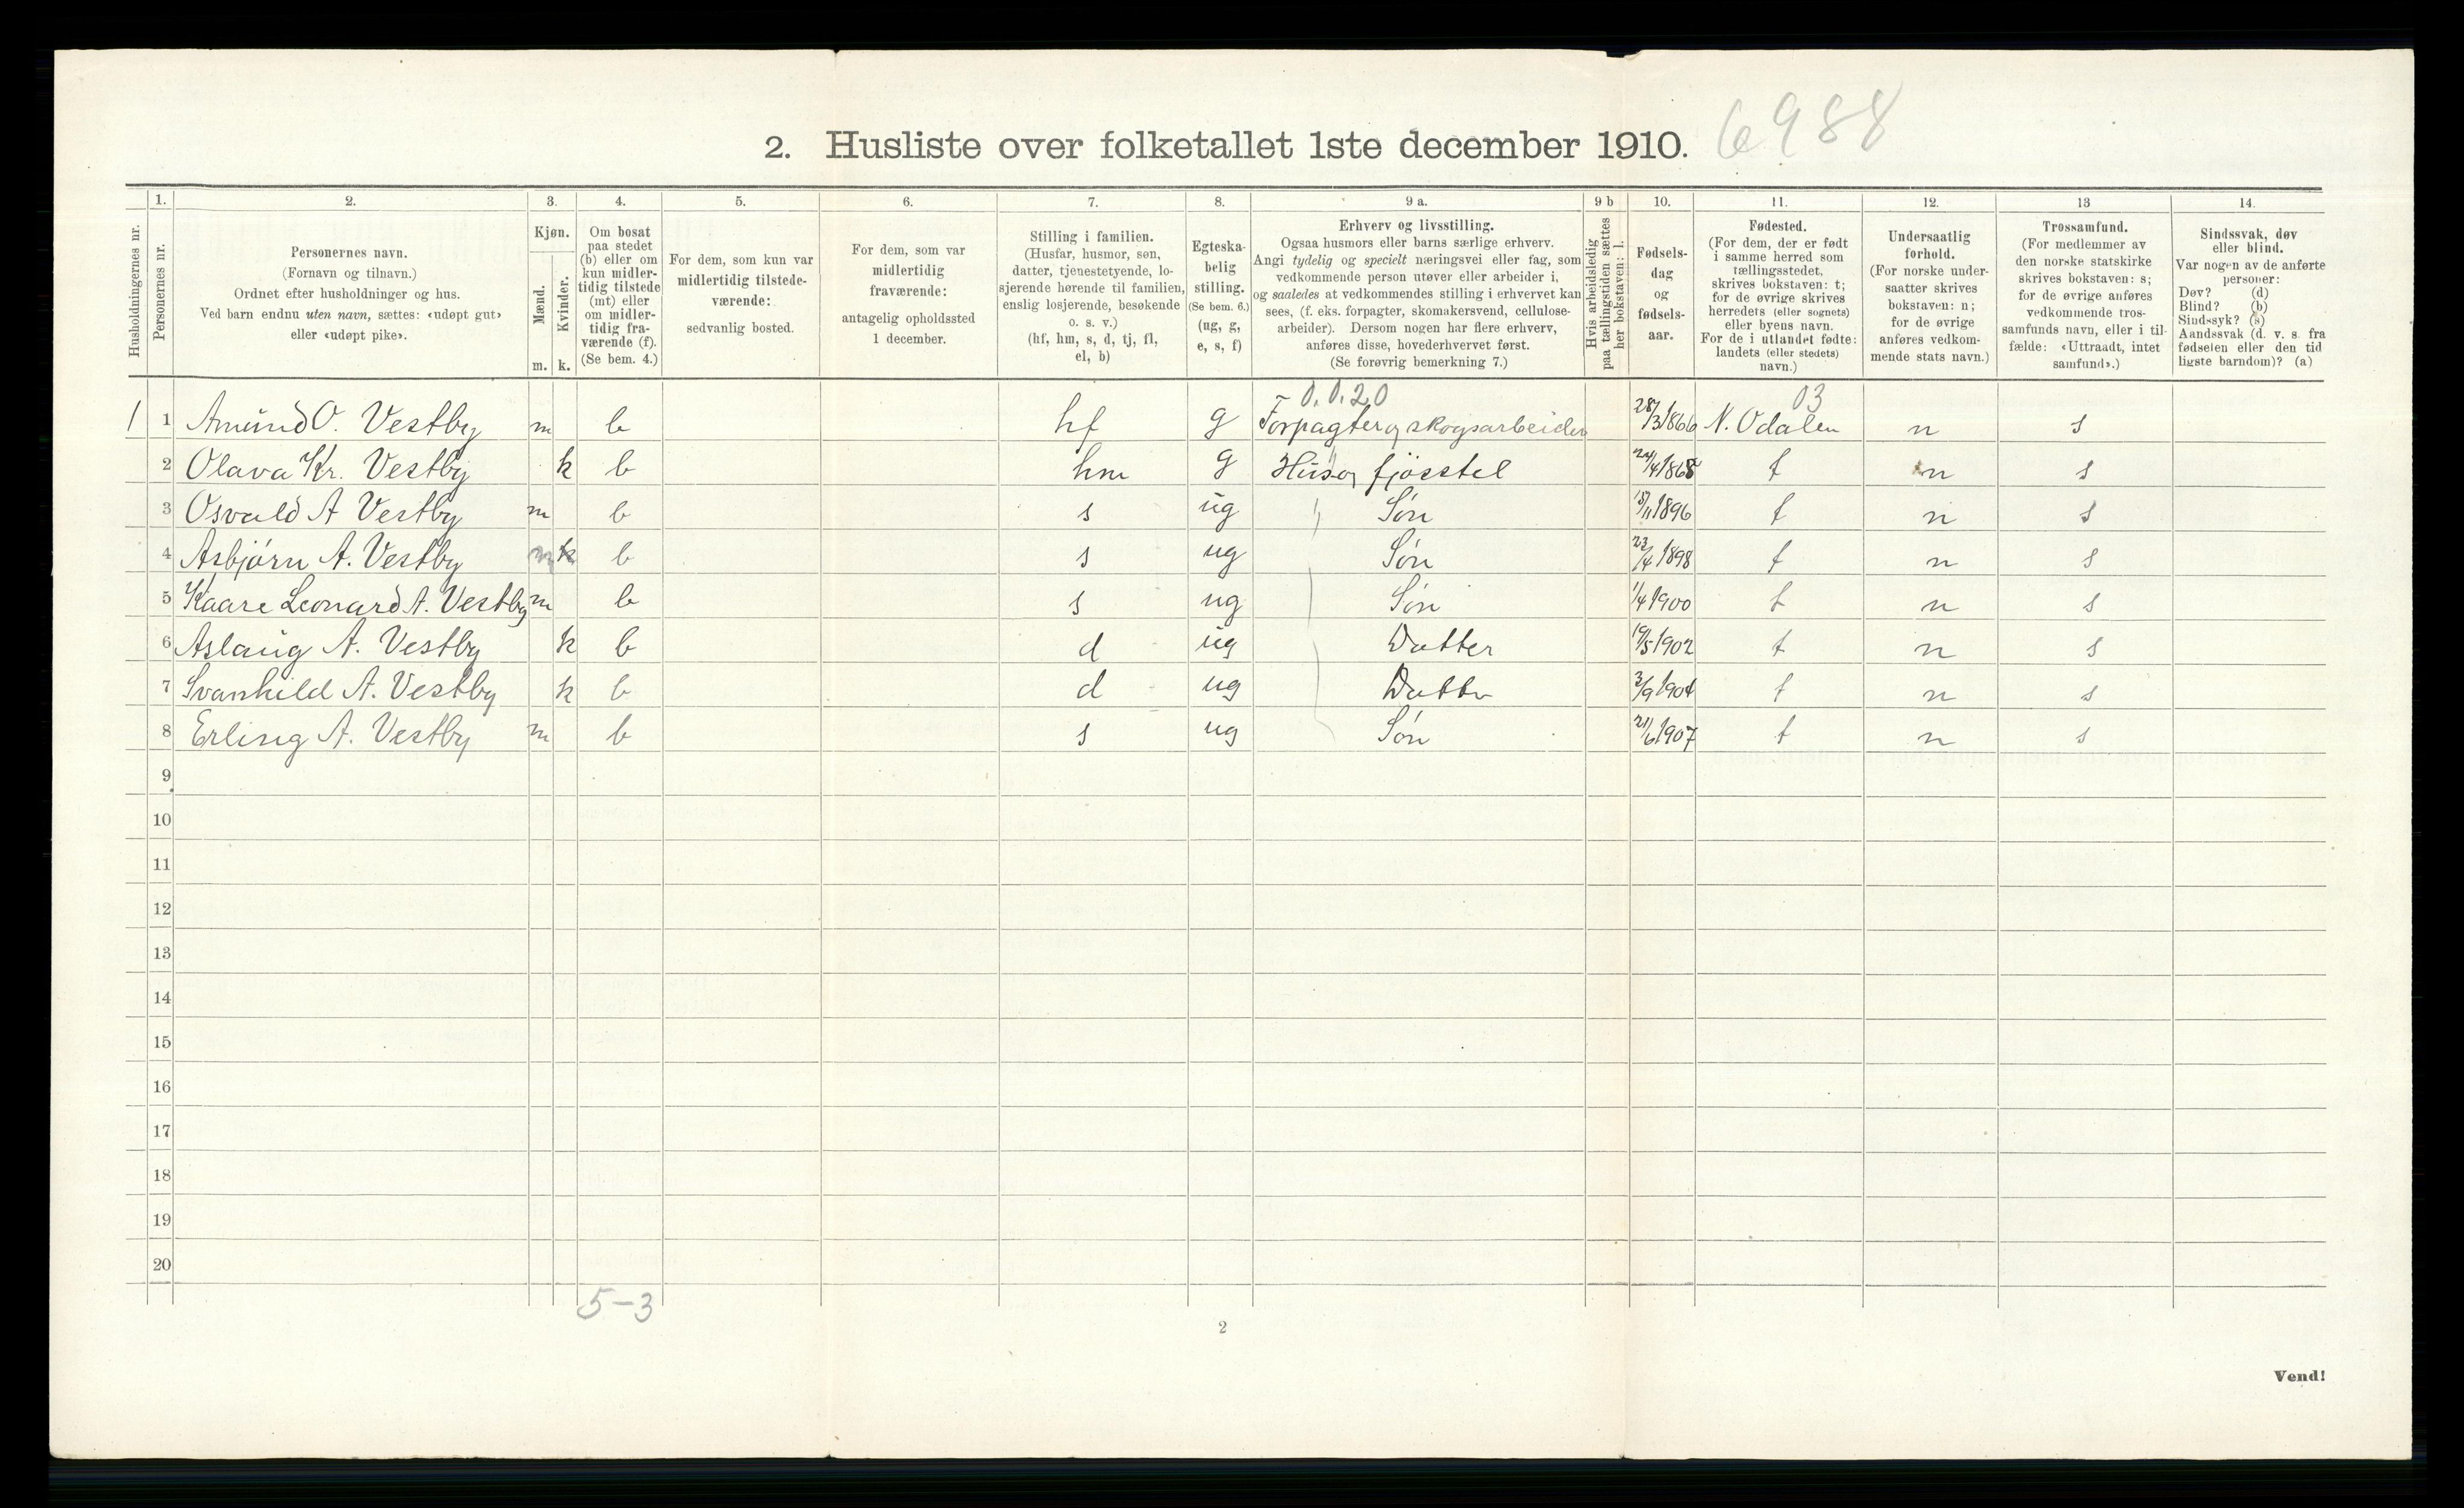 2. Husliste over folketallet 1ste december 1910. 6988
Husholdningernes nr.
1. Personernes nr.
2. Personernes navn.
(Fornavn og tilnavn.)
Ordnet efter husholdninger og hus.
Ved barn endnu uten navn, sættes: «udøpt gut»
eller «udøpt pike».
3. Kjøn.
Mænd. m.
Kvinder. k.
4. Om bosat
paa stedet
(b) eller om
kun midler-
tidig tilstede
(mt) eller
om midler-
tidig fra-
værende (f).
(Se bem. 4.)
5. For dem, som kun var
midlertidig tilstede-
værende:
sedvanlig bosted.
6. For dem, som var
midlertidig
fraværende:
antagelig opholdssted
1 december.
7. Stilling i familien.
(Husfar, husmor, søn,
datter, tjenestetyende, lo-
sjerende hørende til familien,
enslig losjerende, besøkende
o. s. v.)
(hf, hm, s, d, tj, fl,
el, b)
8. Egteska-
belig
stilling.
(Se bem. 6.)
(ug, g,
e, s, f)
9 a. Erhverv og livsstilling.
Ogsaa husmors eller barns særlige erhverv.
Angi tydelig og specielt næringsvei eller fag, som
vedkommende person utøver eller arbeider i,
og saaledes at vedkommendes stilling i erhvervet kan
sees, (f. eks. forpagter, skomakersvend, cellulose-
arbeider). Dersom nogen har flere erhverv,
anføres disse, hovederhvervet først.
(Se forøvrig bemerkning 7.)
9 b Hvis arbeidsledig
paa tællingstiden sættes
her bokstaven: l.
10. Fødsels-
dag
og
fødsels-
aar.
11. Fødested.
(For dem, der er født
i samme herred som
tællingsstedet,
skrives bokstaven: t;
for de øvrige skrives
herredets (eller sognets)
eller byens navn.
For de i utlandet fødte:
landets (eller stedets)
navn.)
12. Undersaatlig
forhold.
(For norske under-
saatter skrives
bokstaven: n;
for de øvrige
anføres vedkom-
mende stats navn.)
13 Trossamfund.
(For medlemmer av
den norske statskirke
skrives bokstaven: s;
for de øvrige anføres
vedkommende tros-
samfunds navn, eller i til-
fælde: «Uttraadt, intet
samfund».)
14. Sindssvak, døv
eller blind.
Var nogen av de anførte
personer:
Døv? (d)
Blind? (b)
Sindssyk? (s)
Aandssvak (d. v. s. fra
fødselen eller den tid
ligste barndom)? (a)
0.0.20 03
1 1 Amund O. Vestby m b hf g Forpagter og skogsarbeider 28/3 1866 N. Odalen n s
2 Olava Kr. Vestby k b hm g Hus og fjøsstel 24/4 1868 t n s
3 Osvald A Vestby m b s ug Søn 15/11 1896 t n s
4 Asbjørn A. Vestby m k b s ug Søn 23/4 1898 t n s
5 Kaare Leonard A. Vestby m b s ug Søn 1/4 1900 t n s
6 Aslaug A. Vestby k b d ug Datter 19/5 1902 t n s
7 Svanhild A. Vestby k b d ug Datter 3/9 1904 t n s
8 Erling A. Vestby m b s ug Søn 21/6 1907 t n s
9
10
11
12
13
14
15
16
17
18
19
20
5-3
2
Vend!